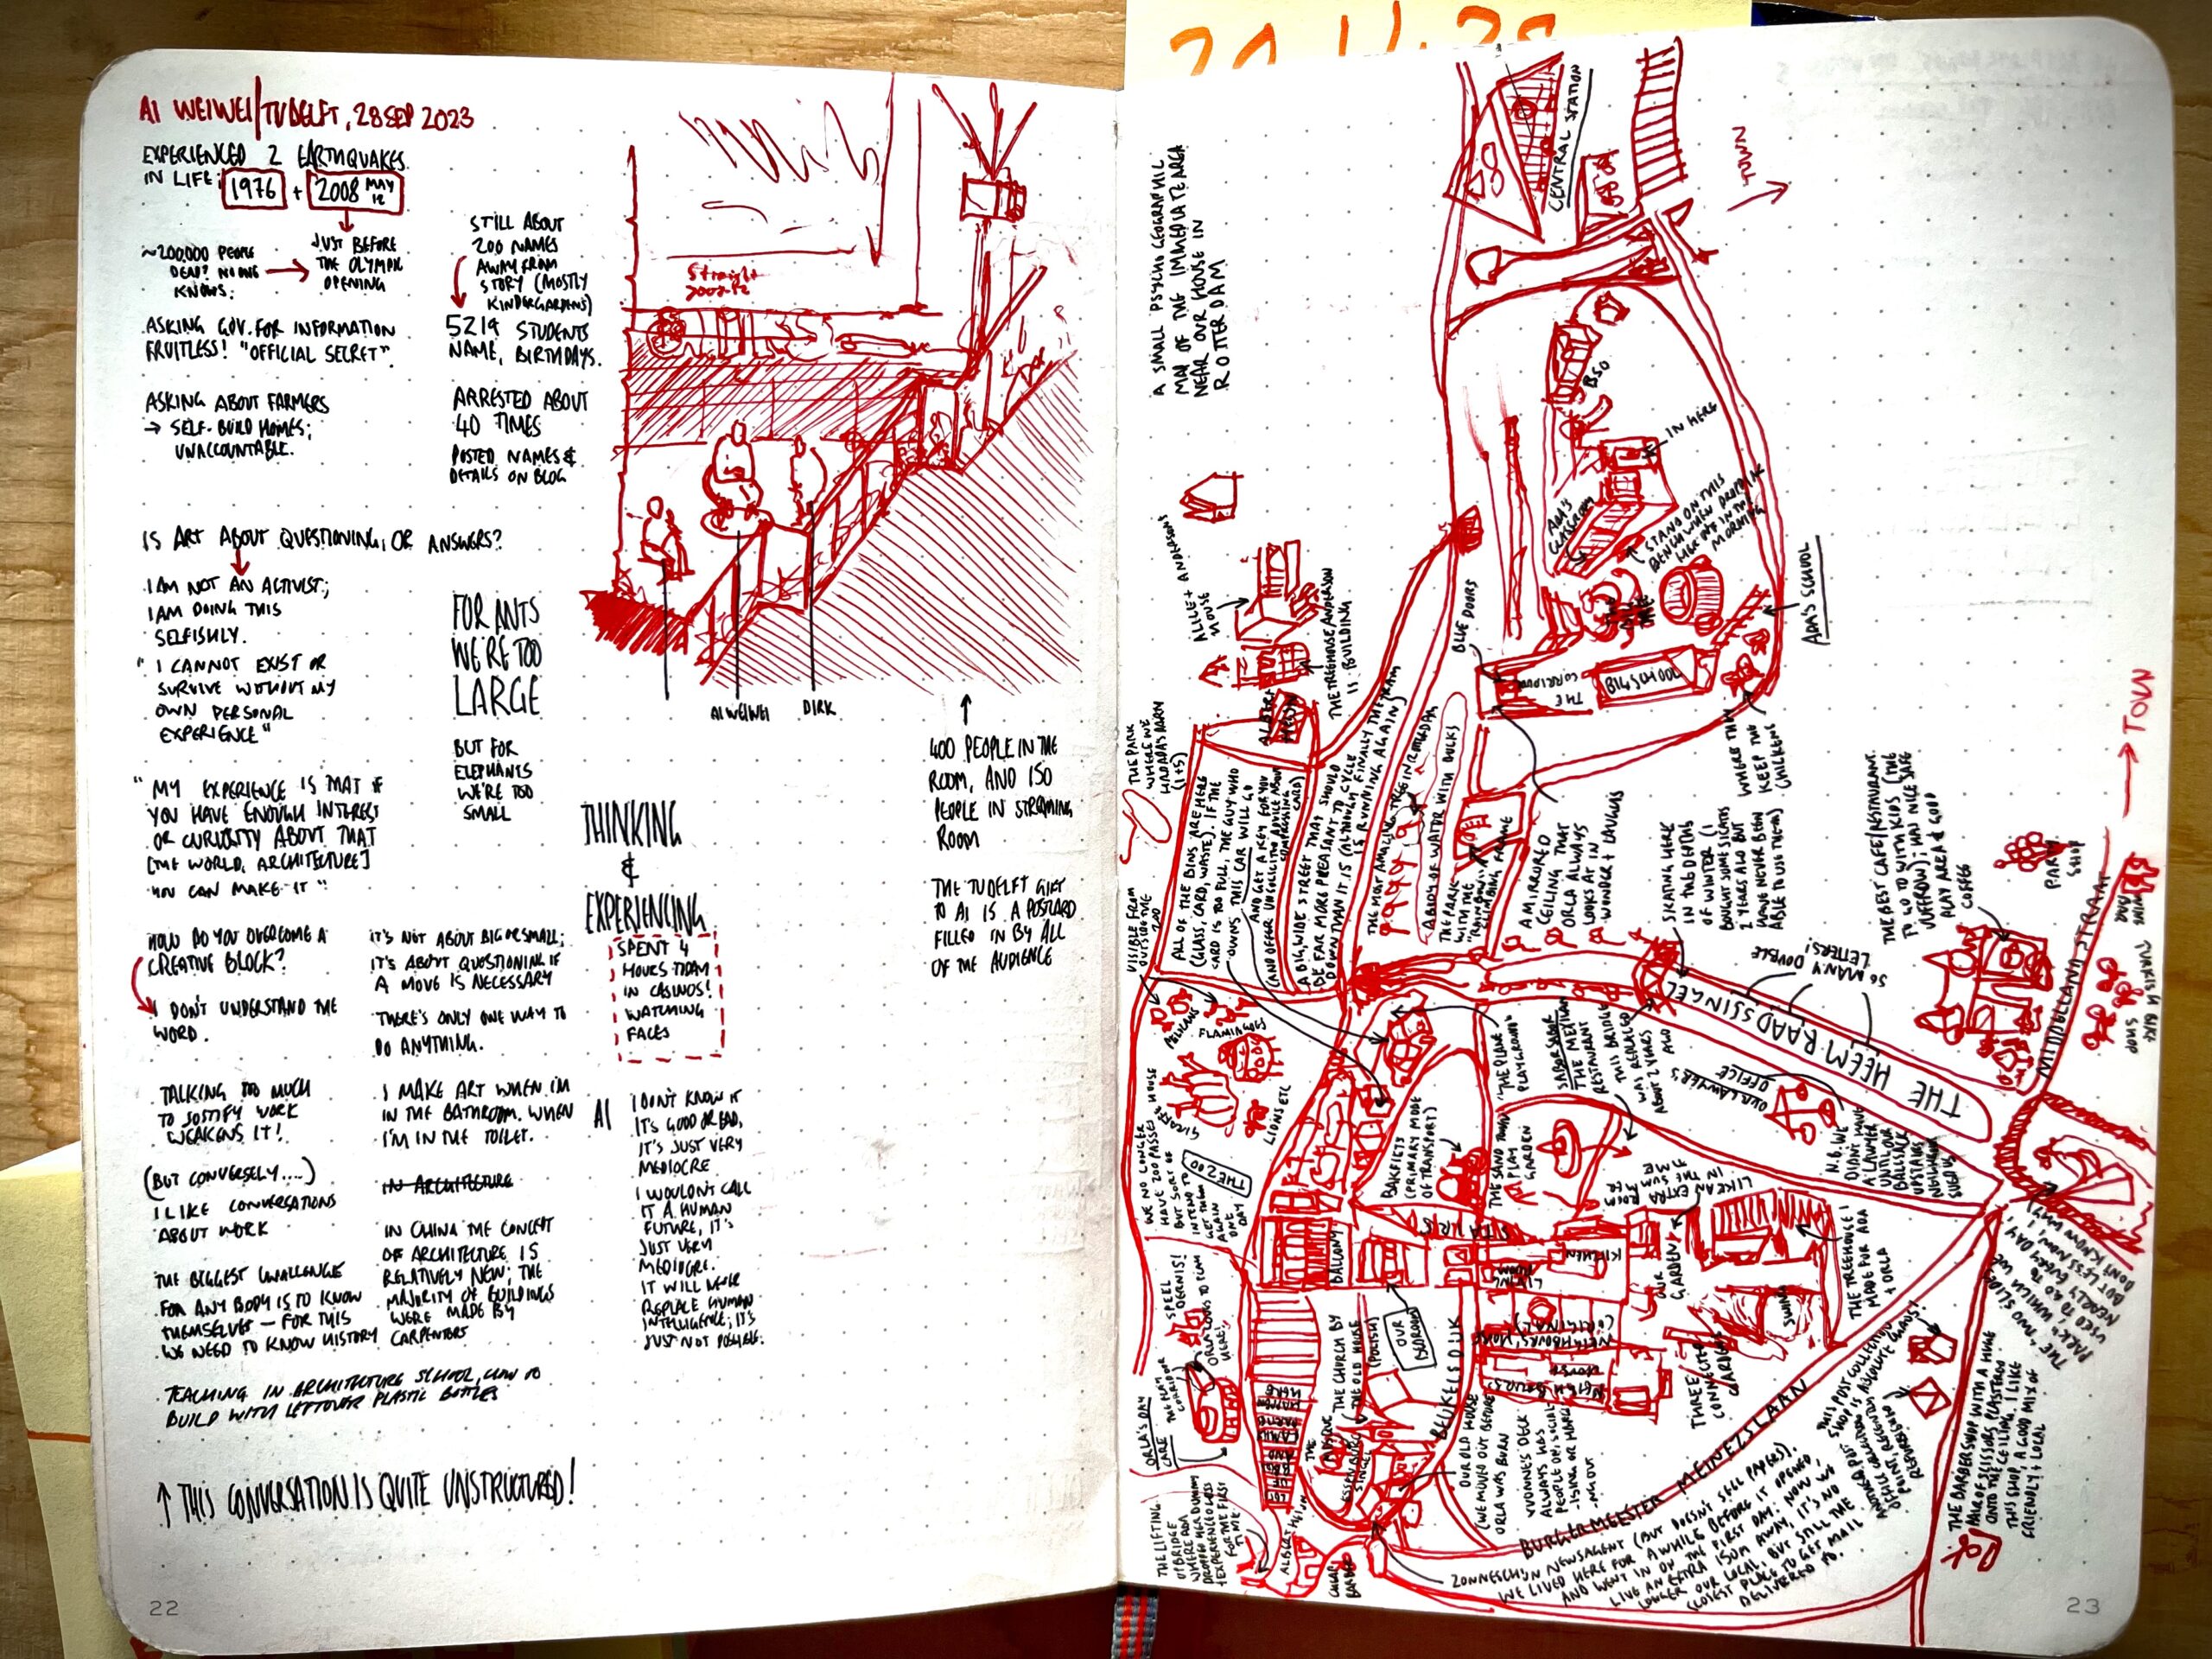 AI WEIWEI/TU DELFT, 28 SEP 2023
EXPERIENCED 2 EARTHQUAKES
IN LIFE: 1976 + 2008 MAY 12
~200,000 PEOPLE
DEAD? NO ONE
KNOWS.
JUST BEFORE
THE OLYMPIC
OPENING
ASKING GOV. FOR INFORMATION
FRUITLESS! "OFFICIAL SECRET"
ASKING ABOUT FARMERS
→ SELF-BUILD HOMES;
UNACCOUNTABLE.
STILL ABOUT
200 NAMES
AWAY FROM
STORY (MOSTLY
KINDERGARDENS)
5219 STUDENTS
NAME, BIRTHDAYS.
ARRESTED ABOUT
40 TIMES
POSTED NAMES &
DETAILS ON BLOG
Straight
IS ART ABOUT QUESTIONING, OR ANSWERS?
I AM NOT AN ACTIVIST;
I AM DOING THIS
SELFISHLY.
"I CANNOT EXIST OR
SURVIVE WITHOUT MY
OWN PERSONAL
EXPERIENCE"
FOR ANTS
WE'RE TOO
LARGE
BUT FOR
ELEPHANTS
WE'RE TOO
SMALL
AI WEIWEI
DIRK
"MY EXPERIENCE IS THAT IF
YOU HAVE ENOUGH INTEREST
OR CURIOSITY ABOUT THAT
[THE WORLD, ARCHITECTURE]
YOU CAN MAKE IT"
THINKING
&
EXPERIENCING
SPENT 4
HOURS TODAY
IN CASINOS!
WATCHING
FACES
400 PEOPLE IN THE
ROOM, AND 150
PEOPLE IN STREAMING
ROOM
THE TU DELFT GIFT
TO AI IS A POSTCARD
FILLED IN BY ALL
OF THE AUDIENCE
HOW DO YOU OVERCOME A
CREATIVE BLOCK?
I DON'T UNDERSTAND THE
WORD.
TALKING TOO MUCH
TO JUSTIFY WORK
WEAKENS IT!
(BUT CONVERSELY....)
I LIKE CONVERSATIONS
ABOUT WORK
THE BIGGEST CHALLENGE
FOR ANYBODY IS TO KNOW
THEMSELVES — FOR THIS
WE NEED TO KNOW HISTORY
IT'S NOT ABOUT BIG OR SMALL;
IT'S ABOUT QUESTIONING IF
A MOVE IS NECESSARY
THERE'S ONLY ONE WAY TO
DO ANYTHING.
I MAKE ART WHEN I'M
IN THE BATHROOM. WHEN
I'M IN THE TOILET.
IN ARCHITECTURE
IN CHINA THE CONCEPT
OF ARCHITECTURE IS
RELATIVELY NEW; THE
MAJORITY OF BUILDINGS
WERE MADE BY
CARPENTERS
AI
I DON'T KNOW IF
IT'S GOOD OR BAD,
IT'S JUST VERY
MEDIOCRE
I WOULDN'T CALL
IT A HUMAN
FUTURE, IT'S
JUST VERY
MEDIOCRE.
IT WILL NEVER
REPLACE HUMAN
INTELLIGENCE; IT'S
JUST NOT POSSIBLE.
TEACHING IN ARCHITECTURE SCHOOL, HOW TO
BUILD WITH LEFTOVER PLASTIC BOTTLES
↑ THIS CONVERSATION IS QUITE UNSTRUCTURED!
22
A SMALL PSYCHOGEOGRAPHIC
MAP OF THE IMMEDIATE AREA
NEAR OUR HOUSE IN
ROTTERDAM
CENTRAL STATION
TOWN
BSO
IN HERE
ADA'S
CLASSROOM
I STAND ON THIS
BENCH WHEN DROPPING
MORNING
ADA'S SCHOOL
BLUE DOORS
THE
CORRIDOR
BIG SCHOOL
ALLIE + ANDERSON'S
HOUSE
THE TREEHOUSE ANDERSON
IS BUILDING
ALBERT
HEIJN
THE PARK
WHERE WE
HAD ADA'S PARTY
VISIBLE FROM
OUTSIDE THE
ZOO
ALL OF THE BINS ARE HERE
(GLASS, CARD, WASTE). IF THE
CARD IS TOO FULL, THE GUY WHO
OWNS THIS CAR WILL GO
AND GET A KEY FOR YOU
(AND OFFER UNSOLICITED ADVICE ABOUT
COMPRESSING
CARD)
A BIG, WIDE STREET THAT SHOULD
BE FAR MORE PLEASANT TO CYCLE
DOWN THAN IT IS (ALTHOUGH THE TRAM
IS FINALLY RUNNING AGAIN)
THE MOST AMAZING TREE IN ROTTERDAM
A BODY OF WATER WITH DUCKS
THE PARK
WITH THE
"RAINBOW"
CLIMBING FRAME
A MIRRORED
CEILING THAT
ORLA ALWAYS
LOOKS AT IN
WONDER + LAUGHS
SKATING HERE
IN THE DEPTHS
OF WINTER (I
BOUGHT SOME SKATES
2 YEARS AGO BUT
HAVE NEVER BEEN
ABLE TO USE THEM)
WHERE THEY
KEEP THE
CHICKENS
THE BEST CAFE/RESTAURANT
TO GO TO WITH KIDS (THE
BUFFROW) - HAS NICE SAFE
PLAY AREA & GOOD
COFFEE
PARTY
SHOP
→ TOWN
MIDDELLANDSTRAAT
TURKISH BIKE
SHOP
SO MANY DOUBLE
LETTERS!
THE HEEMRAADSSINGEL
PELICANS
FLAMINGOS
GIRAFFE HOUSE
LIONS ETC
THE ZOO
WE NO LONGER
HAVE ZOO PASSES
BUT SORT OF
INTEND TO
GET THEM
AGAIN
ONE
DAY
THE PLANE
PLAYGROUND
SABOR SABOR
THE MEXICAN
RESTAURANT
THIS BRIDGE
WAS REPLACED
ABOUT 2 YEARS
AGO
OUR LAWYER'S
OFFICE
N.B. WE
DIDN'T HAVE
A LAWYER
UNTIL OUR
UPSTAIRS
NEIGHBOUR
SUED US
BAKFIETS
(PRIMARY MODE
OF TRANSPORT)
GARDEN
LIKE AN EXTRA ROOM
IN THE SUMMER
TIME
STAIRS
BALCONY
KITCHEN
LIVING
ROOM
OUR
GARDEN
OUR
BEDROOM
NEIGHBOURS' HOUSE
NEIGHBOURS'
HOUSE
THE TREEHOUSE I
MADE FOR ADA
+ ORLA
SWING
THREE
CONNECTED
GARDENS
SPEEL
ORLA'S DAY
CARE
THE CHURCH BY
THE OLD HOUSE
(POLISH)
THE
MOSQUE
ESSENBURG
SINGEL
BEUKELSDIJK
OUR OLD HOUSE
(WE MOVED OUT BEFORE
ORLA WAS BORN
YVONNE'S DECK
ALWAYS HAS
PEOPLE ON, SOCIAL
-ISING OR HAVING
THE LIFTING
BRIDGE
WHERE ADA
DROPPED HER DUMMY
+ EXPERIENCED LOSS
FOR THE FIRST
TIME
ALBERT HEIJN
BURGERMEESTER MEINESZLAAN
ZONNESCHIJN NEWSAGENT (BUT DOESN'T SELL PAPERS).
WE LIVED HERE FOR A WHILE BEFORE IT OPENED,
AND WENT IN ON THE FIRST DAY. NOW WE
LIVE AN EXTRA 150M AWAY, IT'S NO
LONGER OUR LOCAL, BUT STILL THE
CLOSEST PLACE TO GET MAIL
DELIVERED TO.
THIS POST COLLECTION
SHOP IS ABSOLUTE CHAOS!
THE BARBERSHOP WITH A HUGE
PAIR OF SCISSORS PLASTERED
ONTO THE CEILING. I LIKE
THIS SHOP, A GOOD MIX OF
FRIENDLY + LOCAL
THE "TWO SLIDE
PARK" WHICH WE
USED TO GO TO
NEARLY EVERY DAY,
BUT LESS NOW, I
DON'T KNOW WHY
23